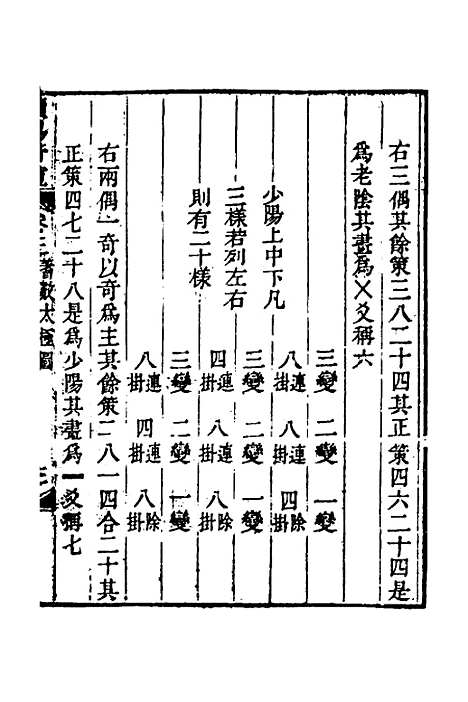 右三偶其餘策三八二十四其正策四六二十四是
爲老陰其畫爲乂爻稱六
三變 二變 一變
少陽上中下凡 八連掛 八連掛 四除掛
三樣若列左右 三變 二變 一變
則有二十樣 四連掛 八連掛 八除掛
三變 二變 一變
八連掛 四連掛 八除掛
右兩偶一奇以奇爲主其餘策二八一四合二十其
正策四七二十八是爲少陽其畫爲一爻稱七
蓍數太極圖